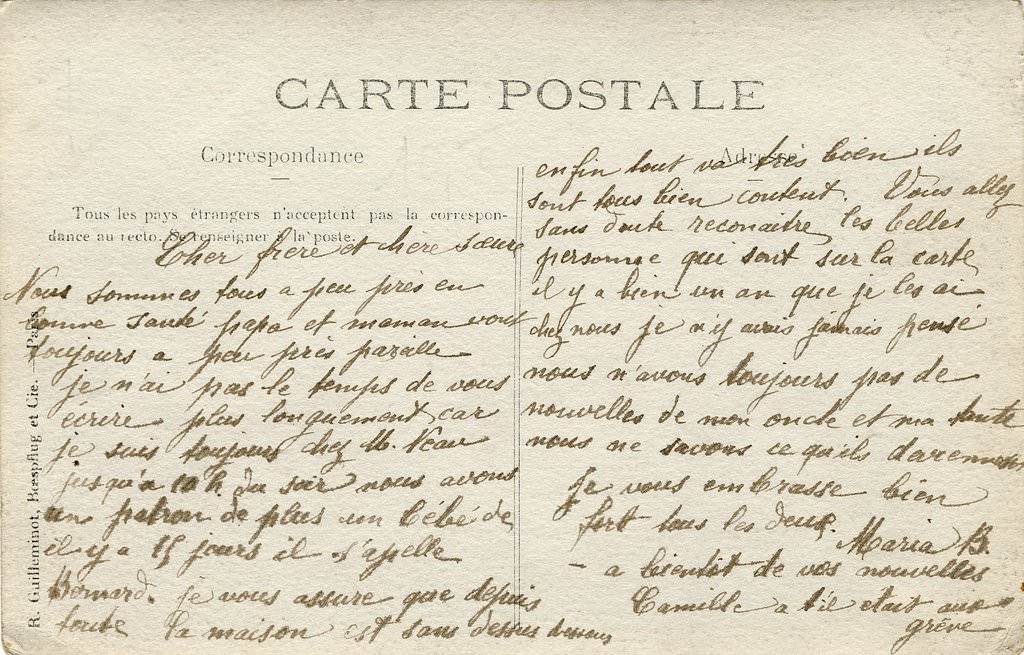 CARTE POSTALE
Correspondance
Tous les pays étrangers n'acceptent pas la correspon-
dance au recto. Se renseigner à la poste.
Cher frère et chère sœure
Nous sommes tous a peu près en
bonne santé papa et maman vont
toujours a peu près pareille
je n'ai pas le temps de vous
écrire plus longuement car
je suis toujours chez M.
jusqu'a 10 h. du soir nous avons
un patron de plus un bébé de
il y a 15 jours il s'apelle
Bernard. je vous assure que depuis
toute la maison est sans dessus dessous
Adresse
enfin tout va très bien ils
sont tous bien content. Vous allez
sans doute reconaitre les belles
personne qui sont sur la carte
il y a bien un an que je les ai
chez nous je n'y avais jamais pensé
nous n'avons toujours pas de
nouvelles de mon oncle et ma tante
nous ne savons ce qu'ils
Je vous embrasse bien
fort tous les deux.
Maria B.
- a bientôt de vos nouvelles
Camille a t'il etait aux
grève
R. Guilleminot, Bœspflug et Cie. — Paris